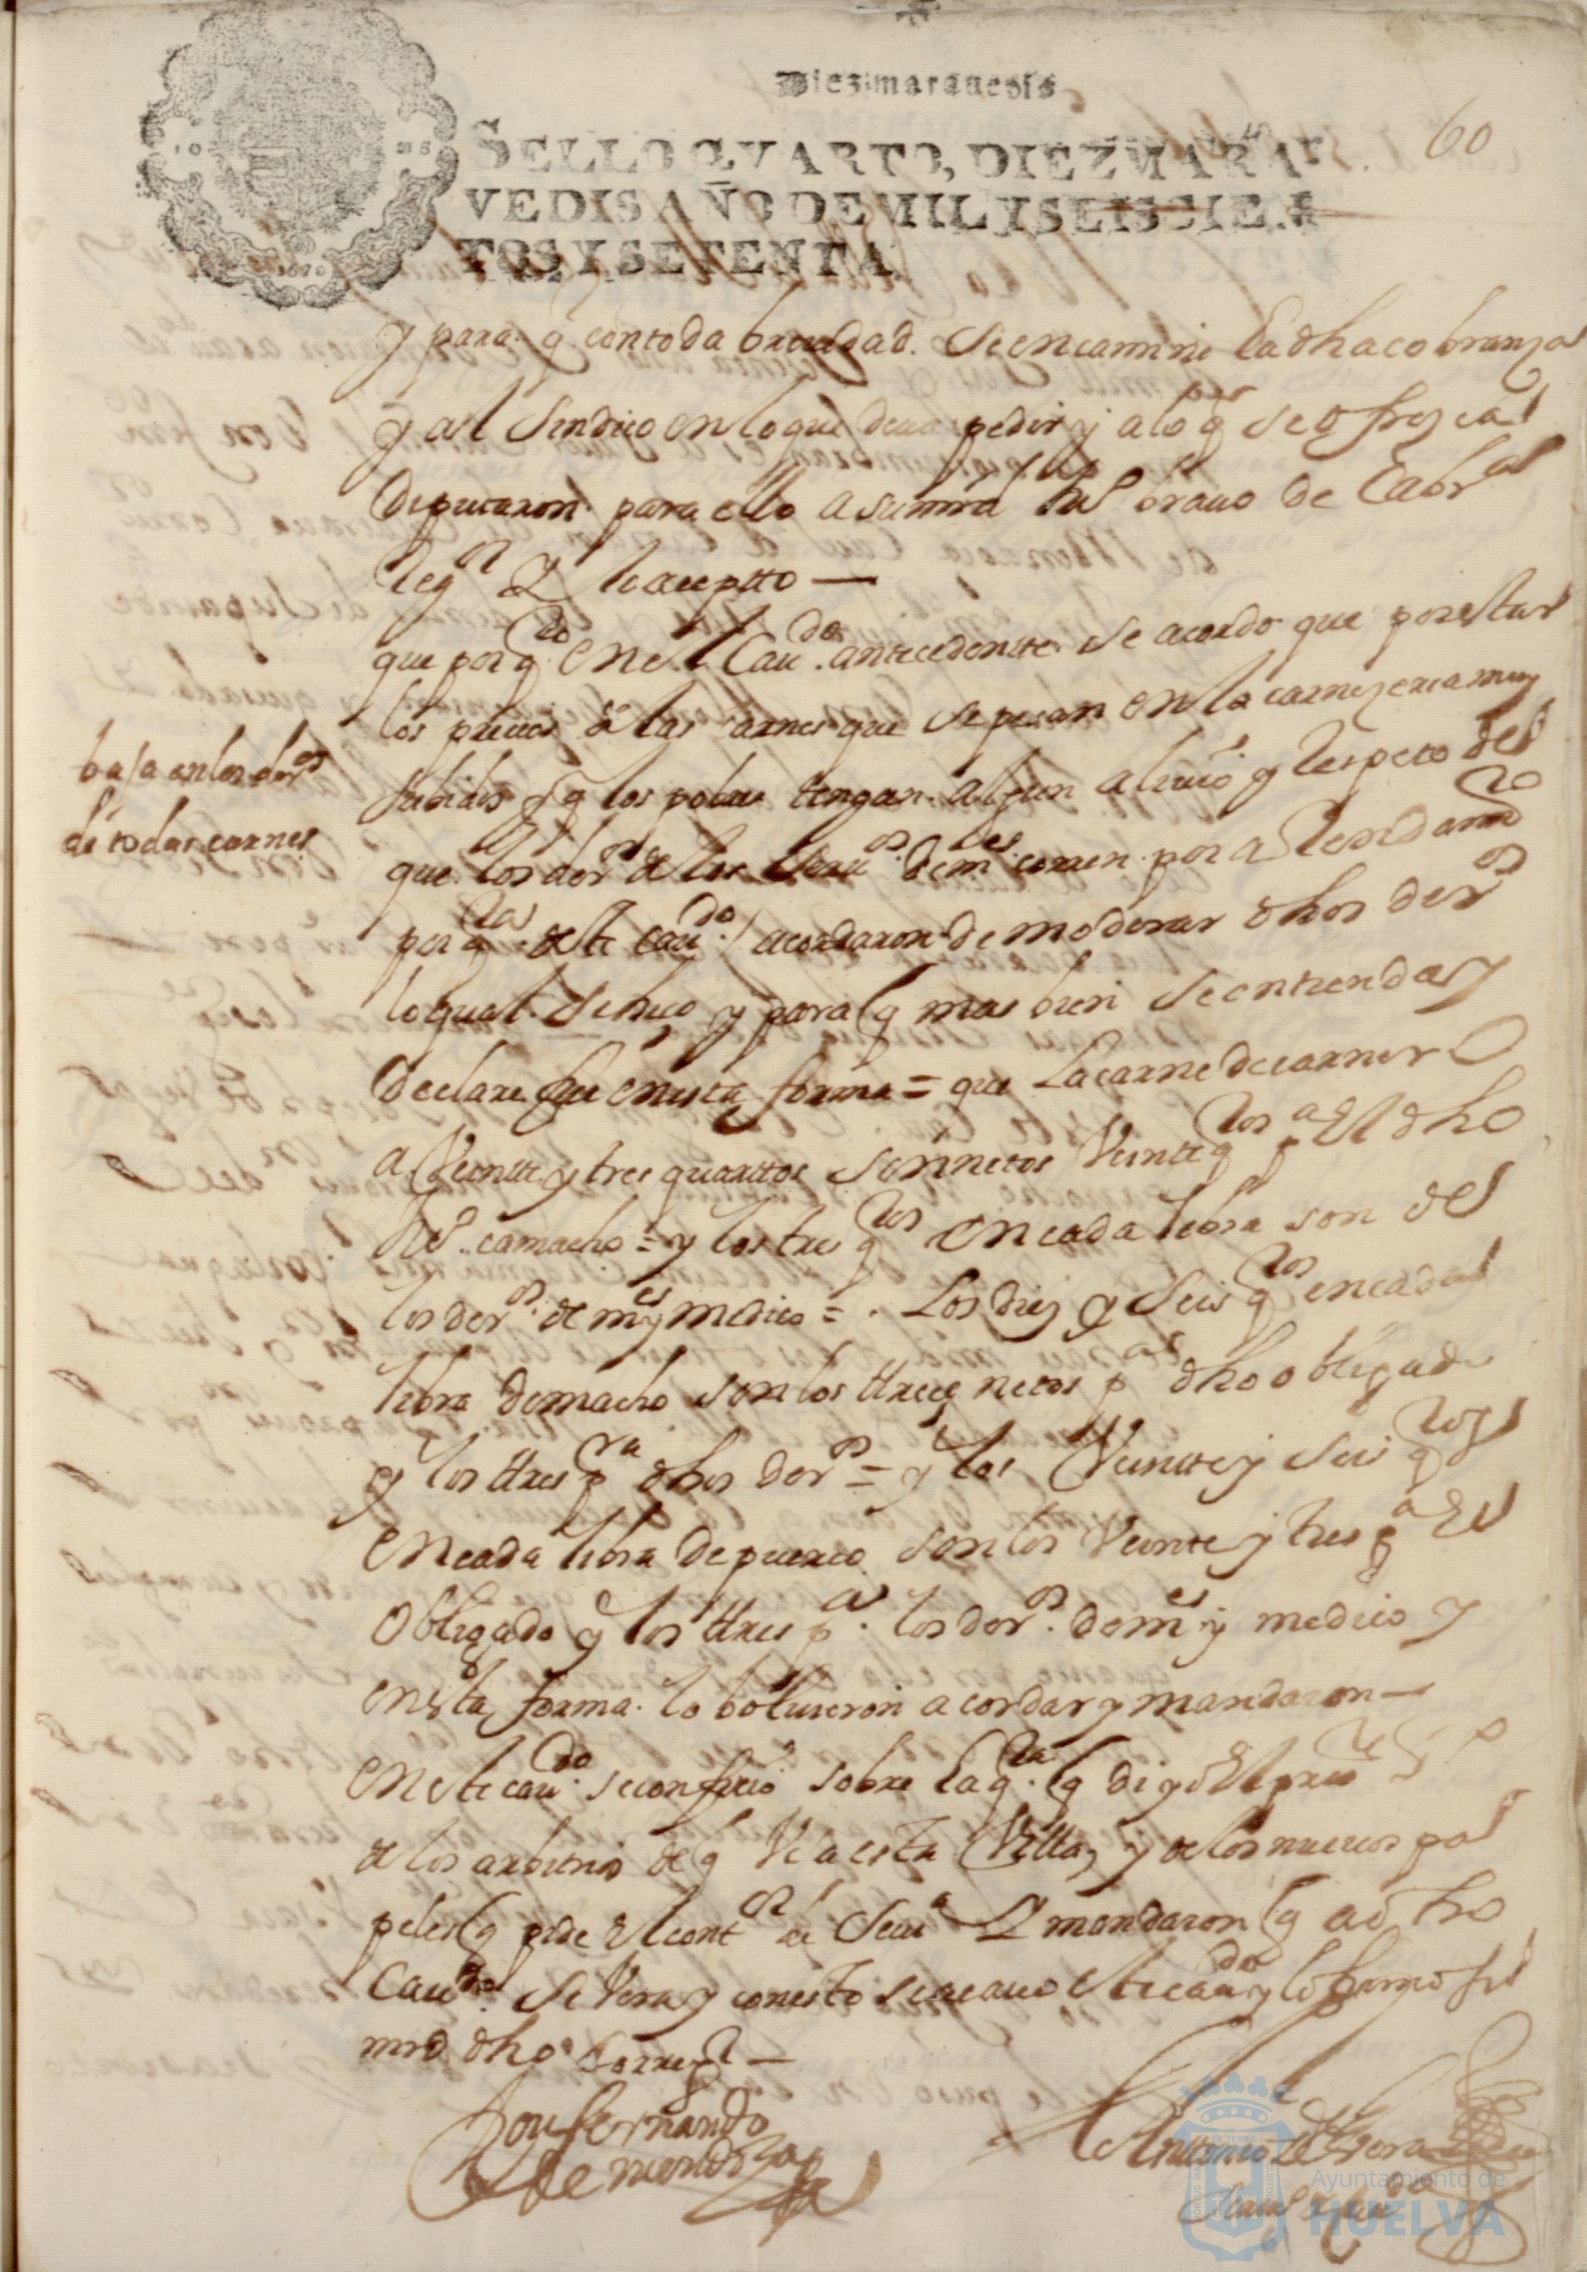 Diez maravedis
60
SELLO QVARTO, DIEZ MARA
VEDIS AÑO DE MIL Y SEISCIEN
TOS Y SETENTA
1670
y para q con toda breuedad. se encamine la dha cobranza
y al sindico en lo que deua pedir y a lo q se ofrezca
diputaron para ello a su mrd brauo de Cabr
Regor Y lo acepto —
que por qdo en el Caudo antecedente se acordo que por estar
los precios de las carnes que se pesan en la carnezeria muy
subidos y q los pobres tengan algun aliuio y respeto del
que los dros de los corren por aRendamto
por qtas deste caudo acordaron de moderar dhos dros
lo qual se hiço y para q mas bien se entienda y
declare fue en esta forma = que La carne de carnero
a Veinte y tres quartos son netos Veinte qtos pa el dho
camacho = y los tres qtos en cada libra son de
los deros de mes y medico = Los diez y seis qtos en cada
libra de macho son los trece netos pa dho obligado
y los tres pra dhos deros = y los Veinte y seis qtos
en cada libra de puerco son los Veinte y tres pa el
obligado y los tres pa los deros de mes y medico y
en esta forma lo boluieron a cordar y mandaron —
en este caudo se confirio sobre la qta q di
de los arbitrios de q Vsa esta Villa y de los nueuos pa
peles q pide el contor de Seua Y mandaron q a dho
Caudo se Vera y con esto se acauo este caudo y lo firmo su
mrd dho Corregor —
Don fernando
de mendoza
Antonio de
baja en los deros
de todas carnes
Ayuntamiento de
HUELVA